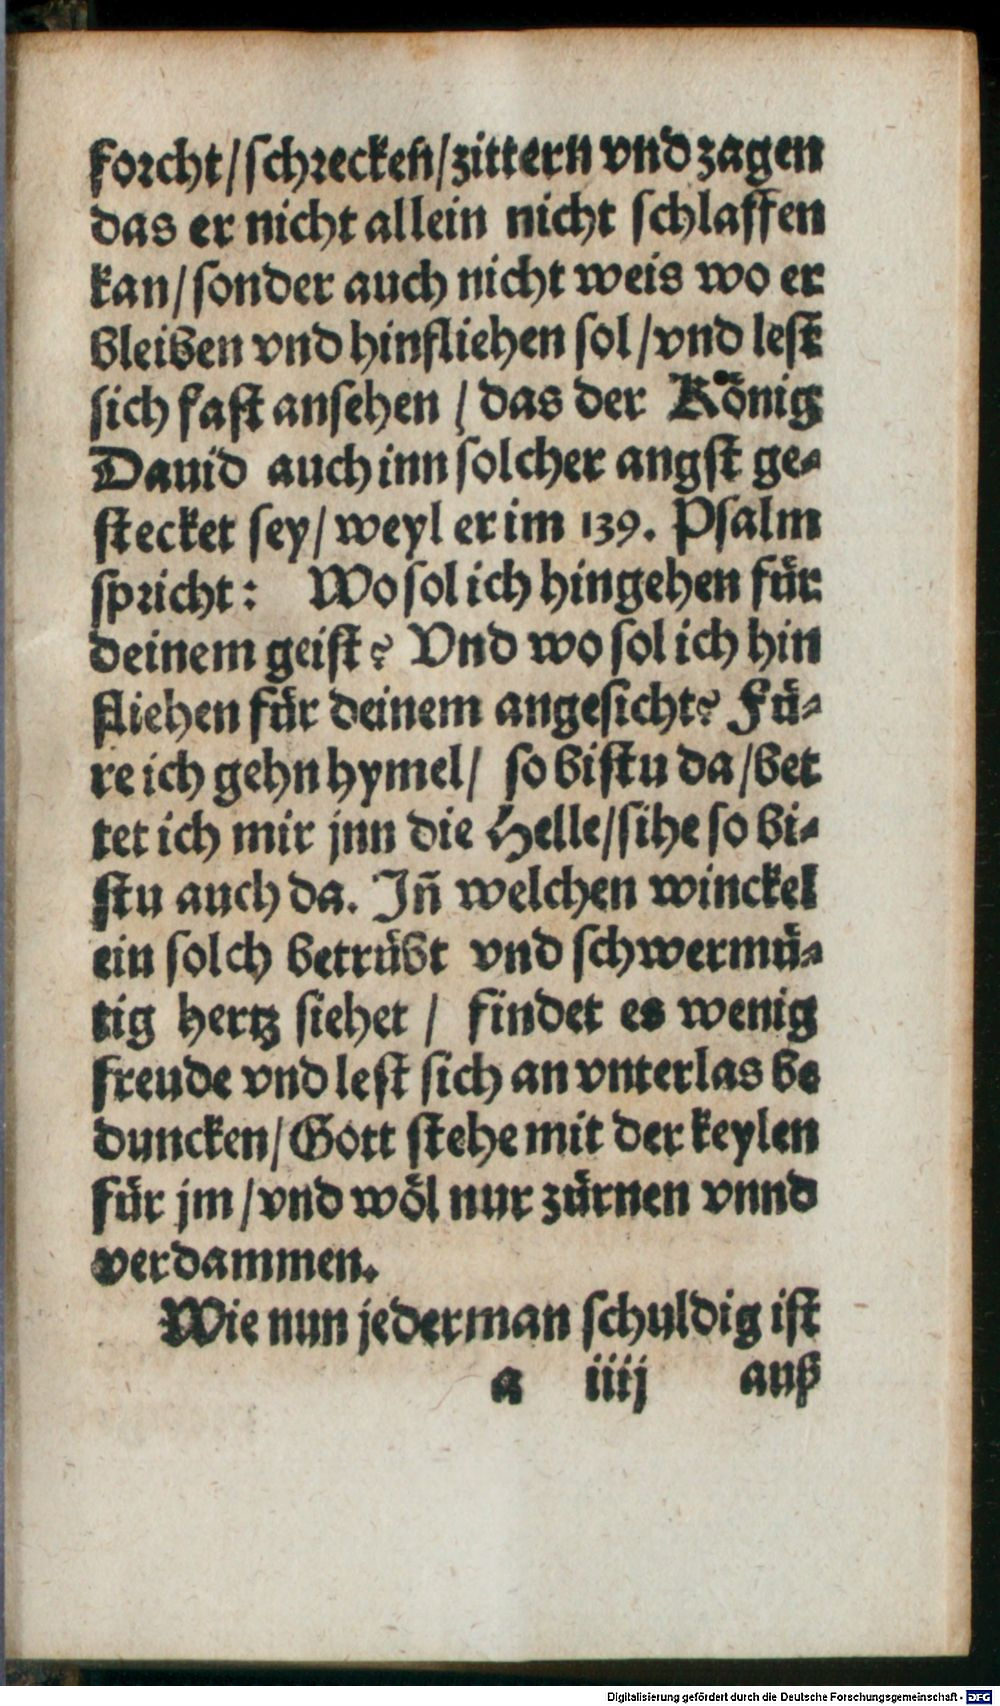 forcht/schrecken/zittern vnd zagen
das er nicht allein nicht schlaffen
kan/sonder auch nicht weis wo er
bleiben vnd hinfliehen sol/vnd lest
sich fast ansehen/das der König
Dauid auch inn solcher angst ge-
stecket sey/weyl er im 139. Psalm
spricht: Wo sol ich hingehen für
deinem geist? Vnd wo sol ich hin
fliehen für deinem angesicht? Fü-
re ich gehn hymel/ so bistu da/bet
tet ich mir jnn die Helle/sihe so bi-
stu auch da. Jñ welchen winckel
ein solch betrübt vnd schwermü-
tig hertz siehet/ findet es wenig
freude vnd lest sich an vnterlas be
duncken/Gott stehe mit der keylen
für jm/vnd wöl nur zürnen vnnd
verdammen.
Wie nun jederman schuldig ist
a iiij auß
Digitalisierung gefördert durch die Deutsche Forschungsgemeinschaft - DFG